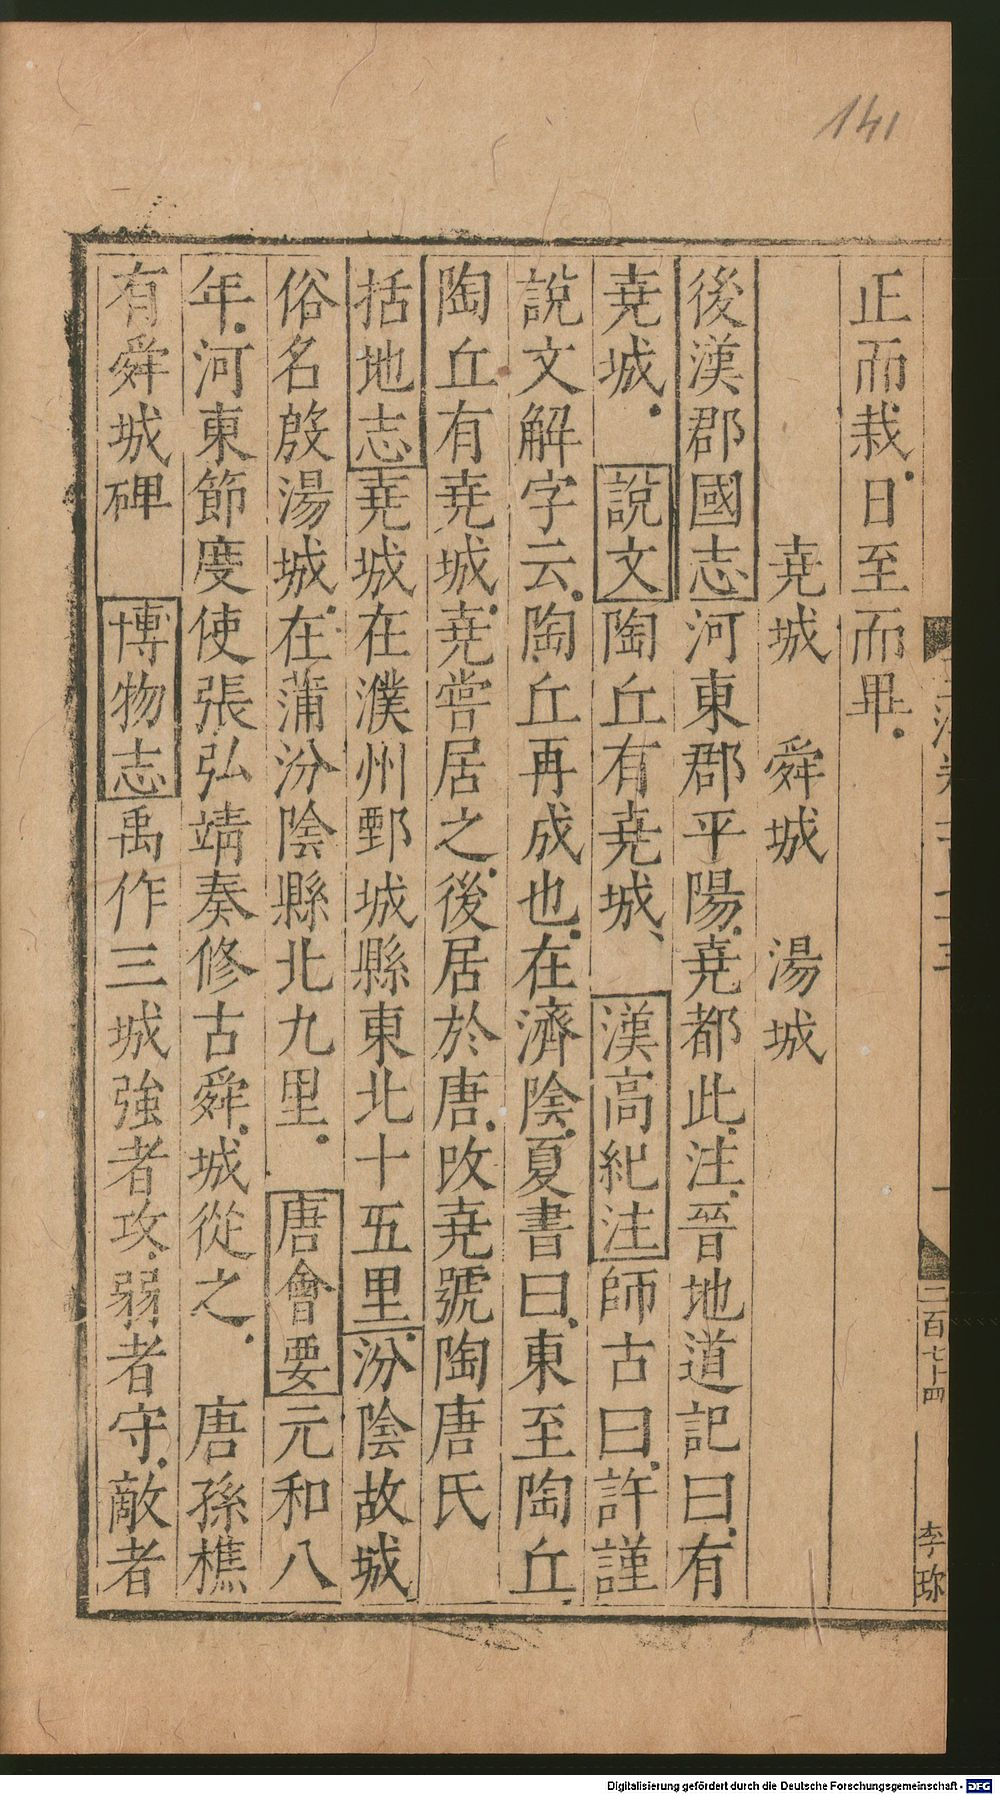 141
正而栽日至而畢
堯城　舜城　湯城
後漢郡國志河東郡平陽堯都此注晉地道記曰有
堯城　說文陶丘有堯城　漢高紀注師古曰許謹
說文解字云陶丘再成也在濟陰夏書曰東至陶丘
陶丘有堯城堯嘗居之後居於唐故堯號陶唐氏
括地志堯城在濮州鄄城縣東北十五里汾陰故城
俗名殷湯城在蒲汾陰縣北九里　唐會要元和八
年河東節度使張弘靖奏修古舜城從之　唐孫樵
有舜城碑　博物志禹作三城強者攻弱者守敵者
二百七十四
李珎
Digitalisierung gefördert durch die Deutsche Forschungsgemeinschaft - DFG